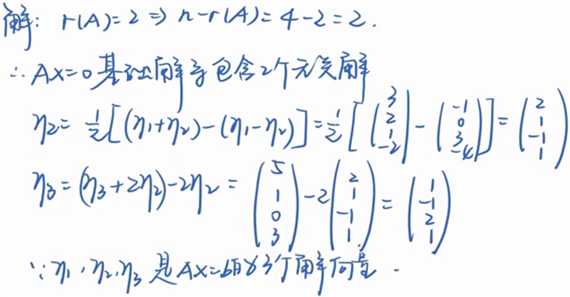 解: r(A)=2 ⇒ n-r(A)=4-2=2.
∴ AX=0 基础解系包含2个无关解
η₂= 1/2[(η₁+η₂)-(η₁-η₂)]=1/2[(3 2 1 -2)-(-1 0 3 -4)]=(2 1 -1 1)
η₃=(η₃+2η₂)-2η₂=(5 1 0 3)-2(2 1 -1 1)=(1 -1 2 1)
∵ η₁,η₂,η₃ 是AX=b的3个解向量.